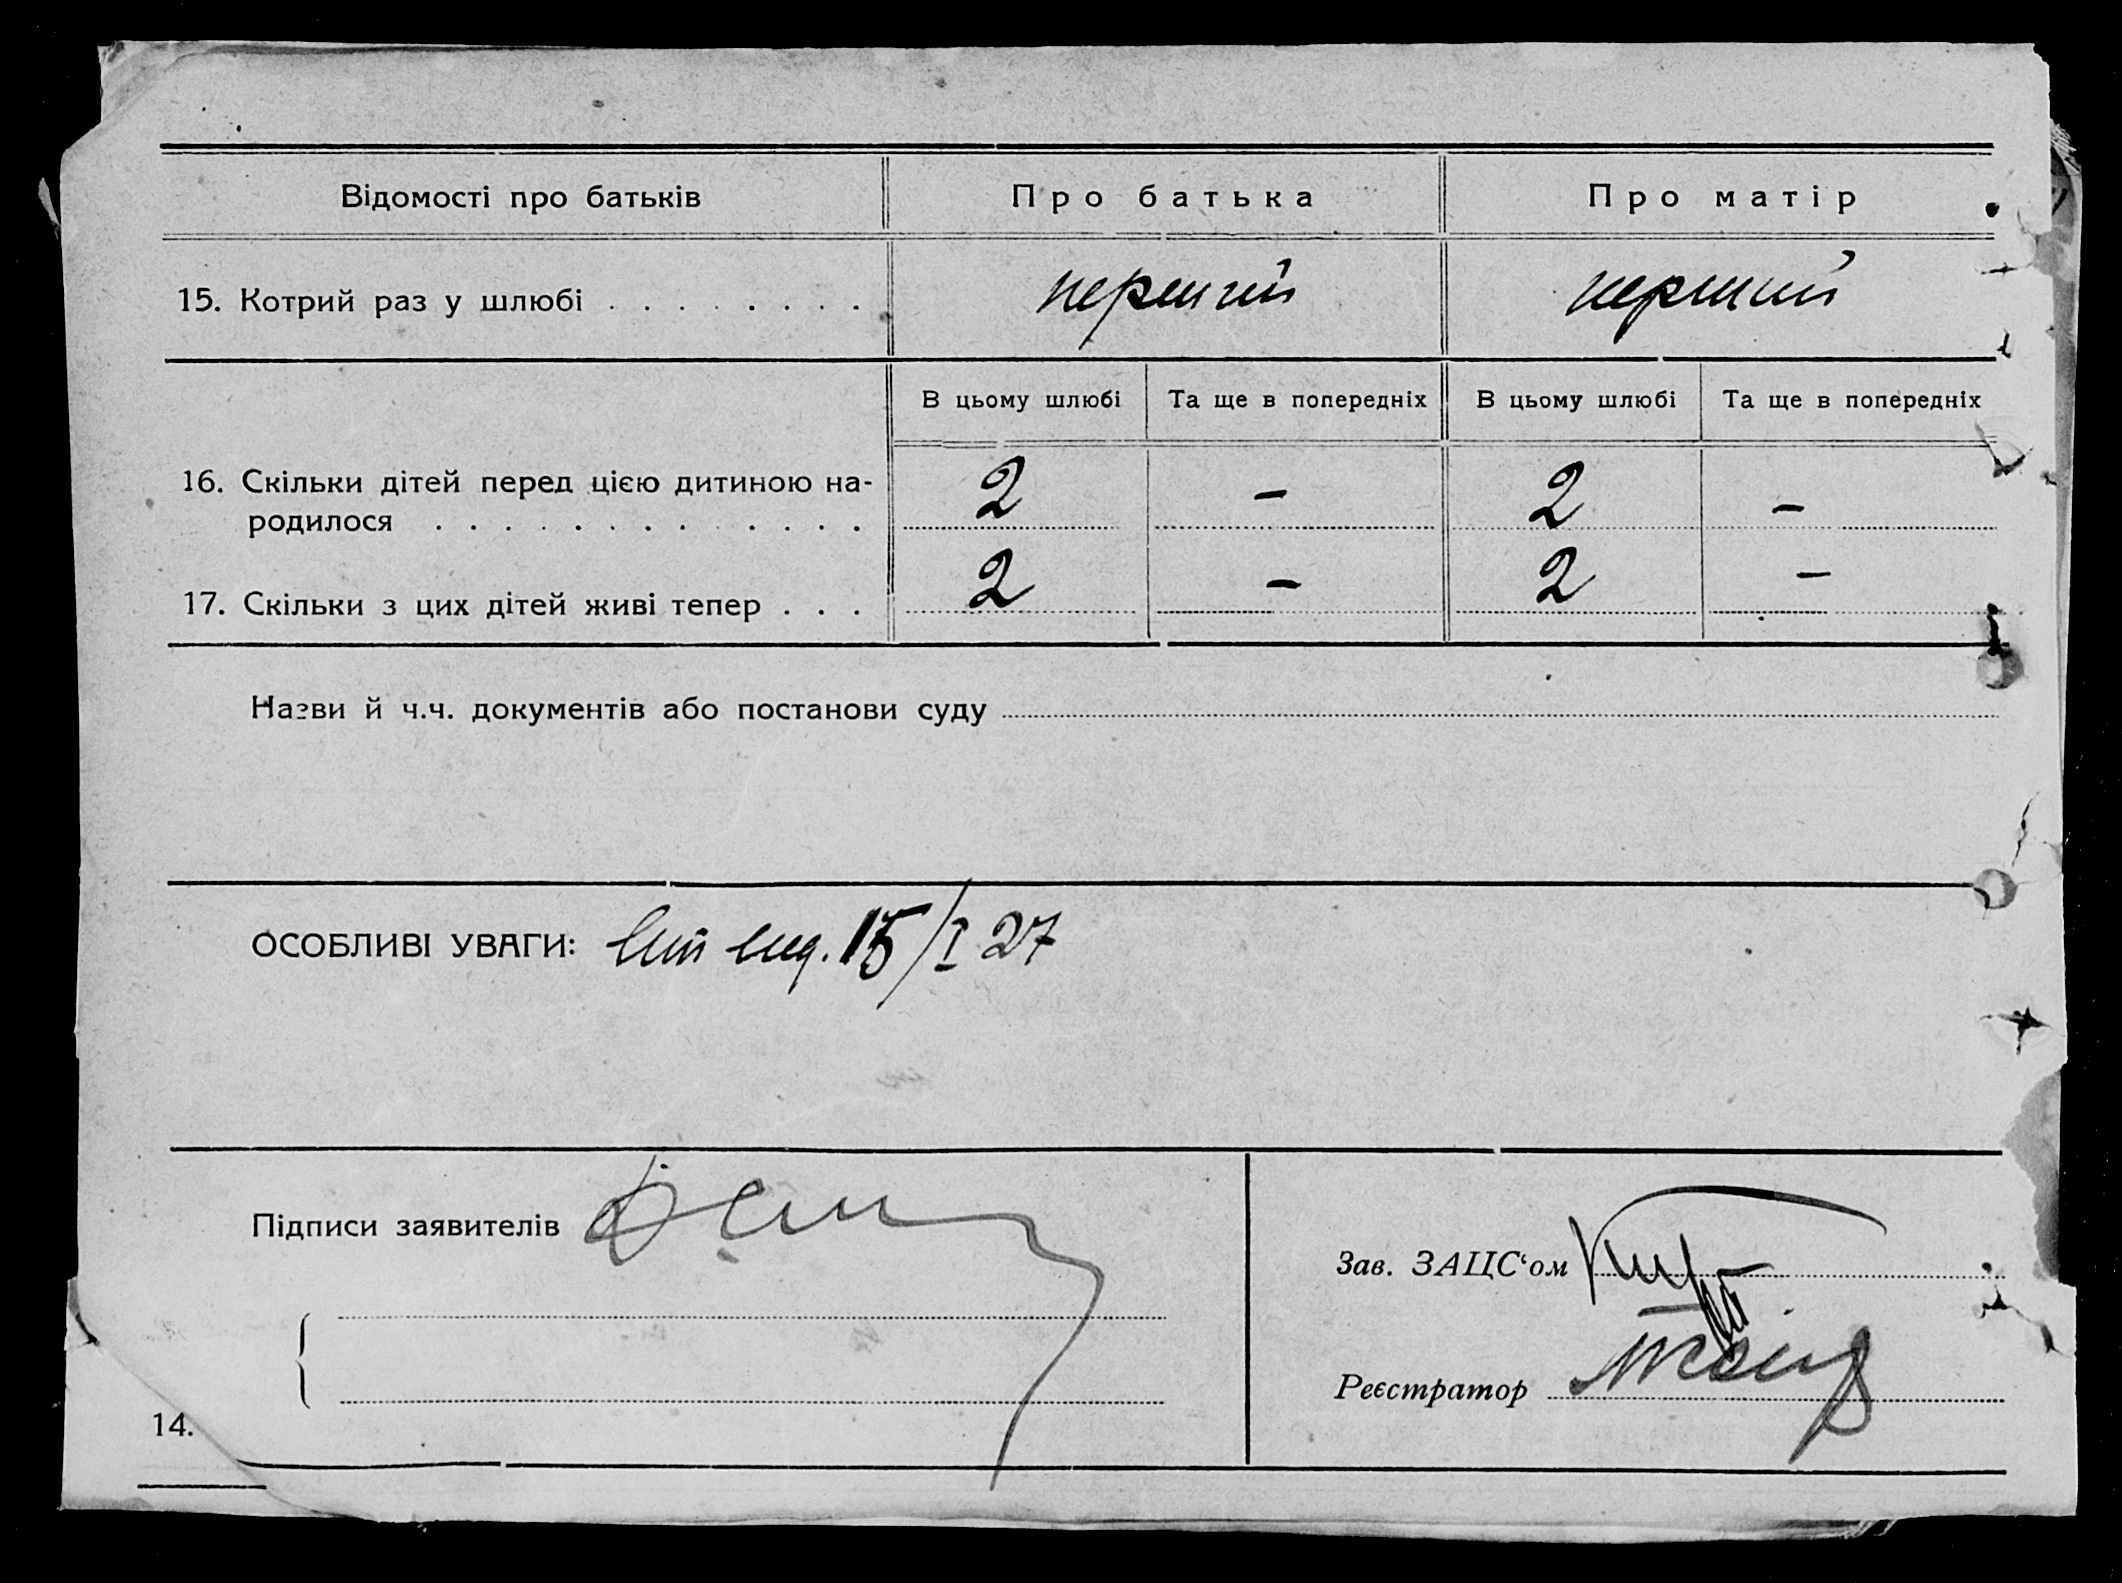 Відомості про батьків Про батька Про матір
15. Котрий раз у шлюбі . . . . . . . . перший перший
В цьому шлюбі Та ще в попередніх В цьому шлюбі Та ще в попередніх
16. Скільки дітей перед цією дитиною на-
родилося . . . . . . . . . . . . . 2 - 2 -
17. Скільки з цих дітей живі тепер . . . 2 - 2 -
Назви й ч.ч. документів або постанови суду
ОСОБЛИВІ УВАГИ: 15/I 27
Підписи заявителів
Зав. ЗАЦС‘ом
Реєстратор
14.